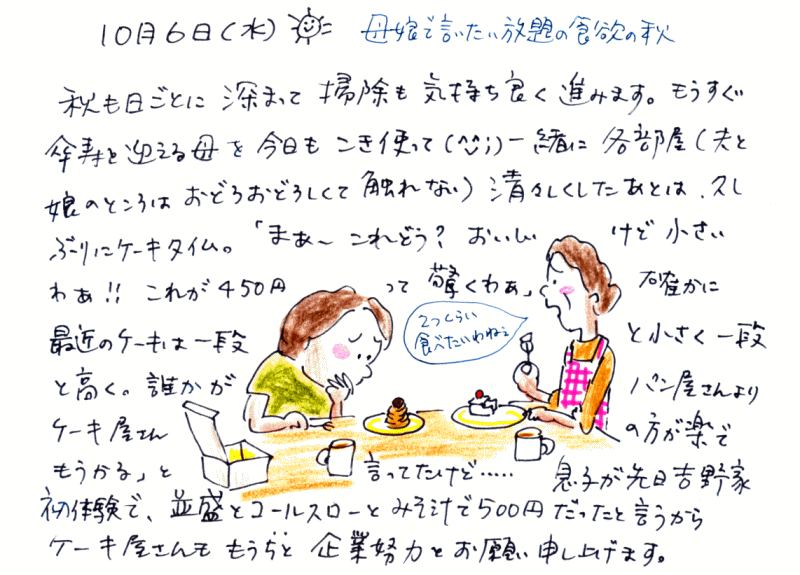 10月6日(水) 母娘で言いたい放題の食欲の秋
秋も日ごとに 深まって 掃除も 気持ち良く 進みます。もうすぐ
傘寿を迎える母を 今日も こき使って(^^;)一緒に 各部屋(夫と
娘のところは おどろおどろしくて 触れない) 清々しくしたあとは、久し
ぶりにケーキタイム。「まあ〜 これどう? おいしい けど 小さい
わぁ!! これが450円 って 驚くわぁ」 確かに
2つくらい
食べたいわねぇ
最近のケーキは一段 と小さく一段
と高く。誰かが パン屋さんより
ケーキ屋さん の方が楽で
もうかる」と 言ってたけど‥‥‥ 息子が先日吉野家
初体験で、並盛とコールスローと みそ汁で500円だったと言うから
ケーキ屋さんも もうちと 企業努力とお願い申し上げます。